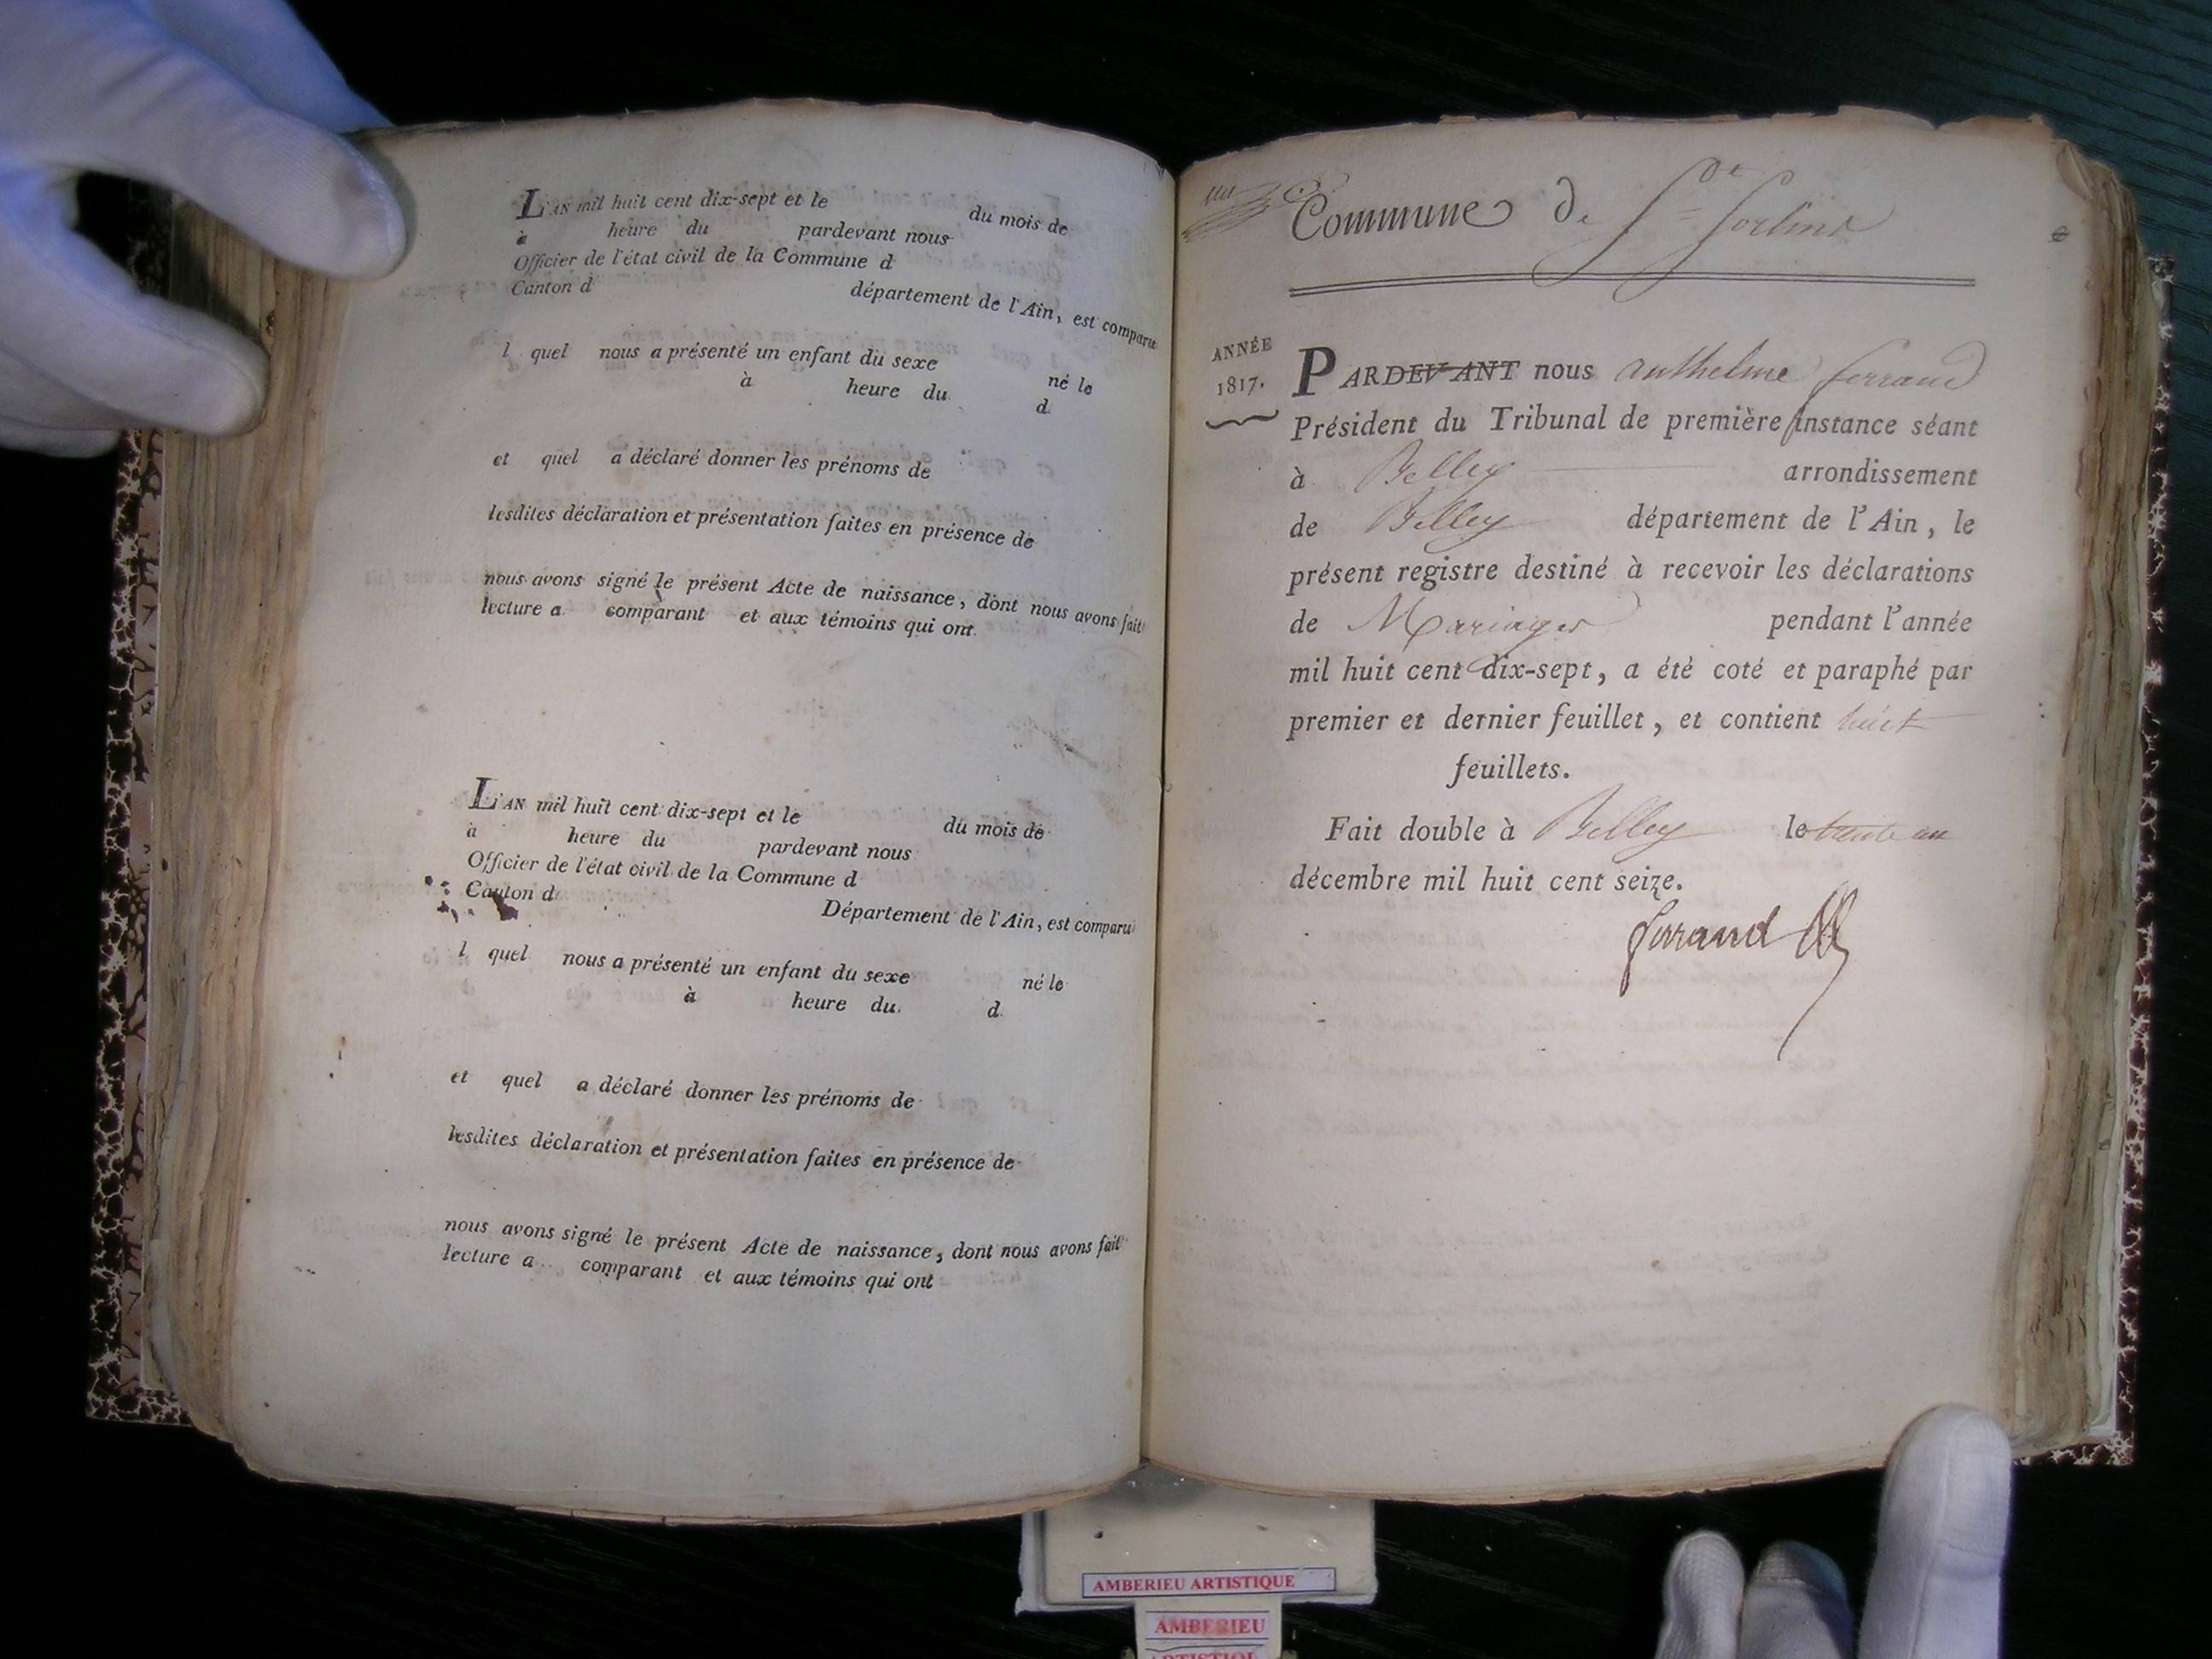 L'AN mil huit cent dix-sept et le du mois de
à heure du pardevant nous
Officier de l'état civil de la Commune d
Canton d département de l'Ain, est comparu
l quel nous a présenté un enfant du sexe né le
à heure du d
et quel a déclaré donner les prénoms de
lesdites déclaration et présentation faites en présence de
nous avons signé le présent Acte de naissance, dont nous avons fait
lecture a comparant et aux témoins qui ont
L'AN mil huit cent dix-sept et le du mois de
à heure du pardevant nous
Officier de l'état civil de la Commune d
Canton d Département de l'Ain, est comparu
l quel nous a présenté un enfant du sexe né le
à heure du d
et quel a déclaré donner les prénoms de
lesdites déclaration et présentation faites en présence de
nous avons signé le présent Acte de naissance, dont nous avons fait
lecture a comparant et aux témoins qui ont
Commune de St Sorlin
ANNÉE
1817.
PARDEVANT nous anthelme ferrand
Président du Tribunal de première instance séant
à Belley arrondissement
de Belley département de l'Ain, le
présent registre destiné à recevoir les déclarations
de Mariages pendant l'année
mil huit cent dix-sept, a été coté et paraphé par
premier et dernier feuillet, et contient huit
feuillets.
Fait double à Belley le trente un
décembre mil huit cent seize.
ferrand
AMBERIEU ARTISTIQUE
AMBERIEU
ARTISTIQUE